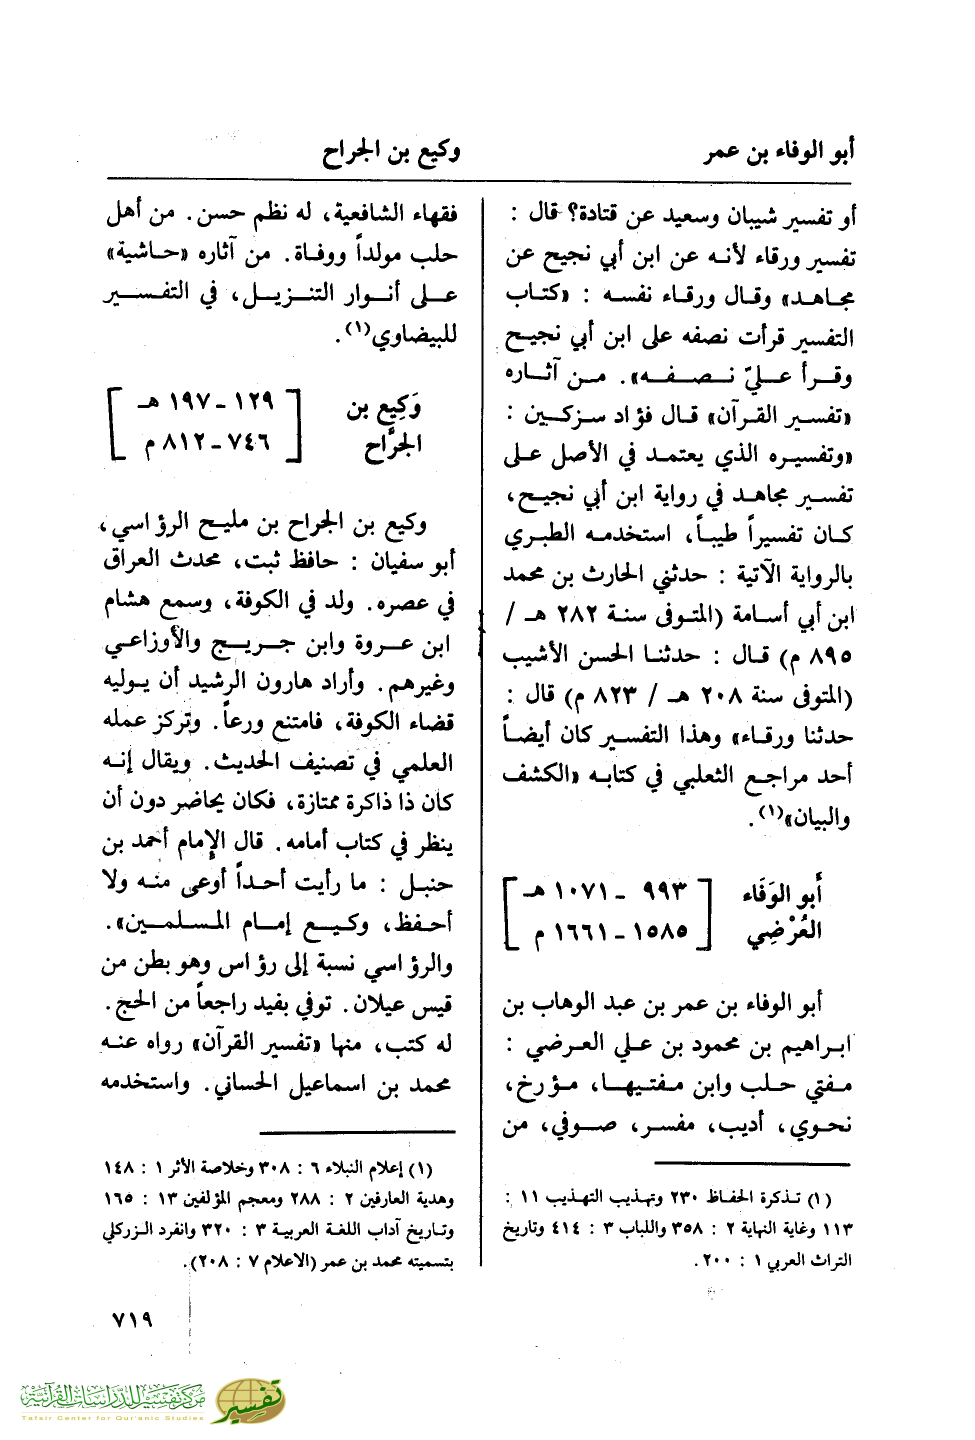 أبو الوفاء بن عمر
وكيع بن الجراح
أو تفسير شيبان وسعيد عن قتادة؟ قال :
تفسير ورقاء لأنه عن ابن أبي نجيح عن
مجاهد» وقال ورقاء نفسه : «كتاب
التفسير قرأت نصفه على ابن أبي نجيح
وقرأ عليّ نصفه». من آثاره
«تفسير القرآن» قال فؤاد سزكين :
«وتفسيره الذي يعتمد في الأصل على
تفسير مجاهد في رواية ابن أبي نجيح،
كان تفسيراً طيباً، استخدمه الطبري
بالرواية الآتية : حدثني الحارث بن محمد
ابن أبي أسامة (المتوفى سنة ٢٨٢ هـ /
٨٩٥ م) قال : حدثنا الحسن الأشيب
(المتوفى سنة ٢٠٨ هـ / ٨٢٣ م) قال :
حدثنا ورقاء» وهذا التفسير كان أيضاً
أحد مراجع الثعلبي في كتابه «الكشف
والبيان»(١).
أبو الوَفَاء [ ٩٩٣ - ١٠٧١ هـ
العُرْضِي ١٥٨٥ - ١٦٦١ م ]
أبو الوفاء بن عمر بن عبد الوهاب بن
ابراهيم بن محمود بن علي العرضي :
مفتي حلب وابن مفتيها، مؤرخ،
نحوي، أديب، مفسر، صوفي، من
(١) تذكرة الحفاظ ٢٣٠ وتهذيب التهذيب ١١ :
١١٣ وغاية النهاية ٢ : ٣٥٨ واللباب ٣ : ٤١٤ وتاريخ
التراث العربي ١ : ٢٠٠.
فقهاء الشافعية، له نظم حسن. من أهل
حلب مولداً ووفاة. من آثاره «حاشية»
على أنوار التنزيل، في التفسير
للبيضاوي(١).
وَكِيع بن [ ١٢٩ - ١٩٧ هـ
الجرَّاح ٧٤٦ - ٨١٢ م ]
وكيع بن الجراح بن مليح الرؤاسي،
أبو سفيان : حافظ ثبت، محدث العراق
في عصره. ولد في الكوفة، وسمع هشام
ابن عروة وابن جريج والأوزاعي
وغيرهم. وأراد هارون الرشيد أن يوليه
قضاء الكوفة، فامتنع ورعاً. وتركز عمله
العلمي في تصنيف الحديث. ويقال إنه
كان ذا ذاكرة ممتازة، فكان يحاضر دون أن
ينظر في كتاب أمامه. قال الإمام أحمد بن
حنبل : ما رأيت أحداً أوعى منه ولا
أحفظ، وكيع إمام المسلمين».
والرؤاسي نسبة إلى رؤاس وهو بطن من
قيس عيلان. توفي بفيد راجعاً من الحج.
له كتب، منها «تفسير القرآن» رواه عنه
محمد بن اسماعيل الحساني. واستخدمه
(١) إعلام النبلاء ٦ : ٣٠٨ وخلاصة الأثر ١ : ١٤٨
وهدية العارفين ٢ : ٢٨٨ ومعجم المؤلفين ١٣ : ١٦٥
وتاريخ آداب اللغة العربية ٣ : ٣٢٠ وانفرد الزركلي
بتسميته محمد بن عمر (الاعلام ٧ : ٢٠٨).
٧١٩
مركز تفسير للدراسات القرآنية
Tafsir Center for Qur'anic Studies
تفسير